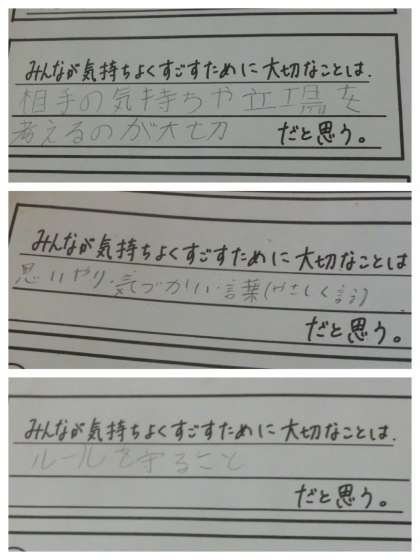 みんなが気持ちよくすごすために大切なことは、
相手の気持ちや立場を
考えるのが大切 だと思う。
みんなが気持ちよくすごすために大切なことは
思いやり・気づかい・言葉(やさしく言う)
だと思う。
みんなが気持ちよくすごすために大切なことは、
ルールを守ること
だと思う。